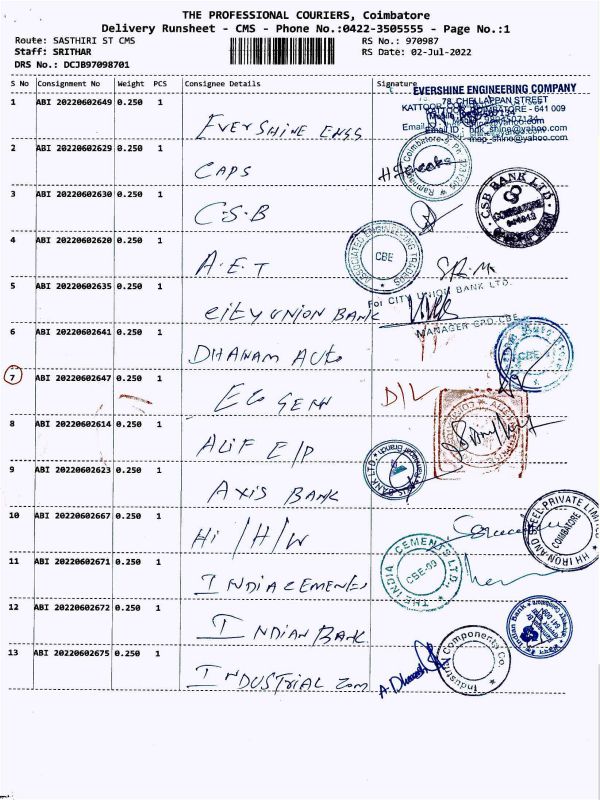 THE PROFESSIONAL COURIERS, Coimbatore
Delivery Runsheet - CMS - Phone No.:0422-3505555 - Page No.:1
Route: SASTHIRI ST CMS RS No.: 970987
Staff: SRITHAR RS Date: 02-Jul-2022
DRS No.: DCJB97098701
S No Consignment No Weight PCS Consignee Details Signature
EVERSHINE ENGINEERING COMPANY
78, CHELLAPPAN STREET
KATTOOR, COIMBATORE - 641 009
1 ABI 20220602649 0.250 1 EVERSHINE ENGG
2 ABI 20220602629 0.250 1 CAPS
3 ABI 20220602630 0.250 1 C.S.B
CSB BANK LTD.
COIMBATORE
4 ABI 20220602620 0.250 1 A.E.T
ASSOCIATED ENGINEERING TRADERS
CBE
5 ABI 20220602635 0.250 1 CITY UNION BANK
For CITY UNION BANK LTD.
MANAGER
6 ABI 20220602641 0.250 1 DHANAM AUTO
CBE
7 ABI 20220602647 0.250 1 D/L
8 ABI 20220602614 0.250 1 ALIF E/P
9 ABI 20220602623 0.250 1 AXIS BANK
10 ABI 20220602667 0.250 1 Hi/H/W
HH IRON AND STEEL PRIVATE LIMITED
COIMBATORE
11 ABI 20220602671 0.250 1 INDIA CEMENTES
THE INDIA CEMENTS LTD.
CBE-09
12 ABI 20220602672 0.250 1 INDIAN BANK
Indian Bank
13 ABI 20220602675 0.250 1 INDUSTRIAL COM
Industrial Components Co.